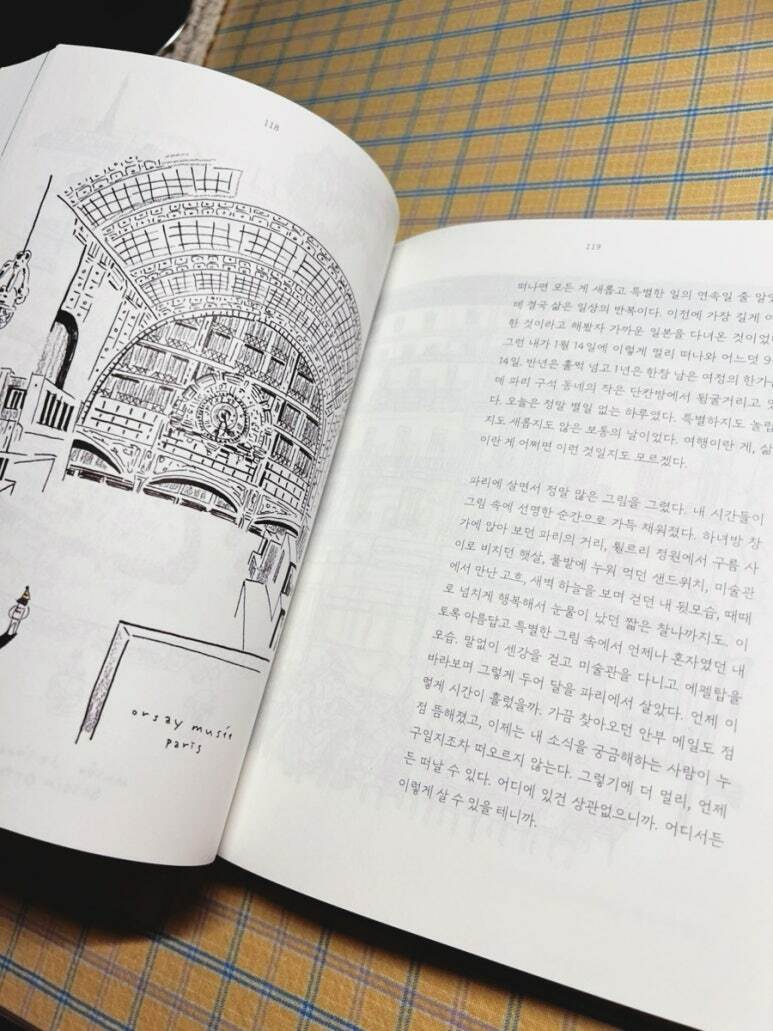 118
orsay musée
paris
119
떠나면 모든 게 새롭고 특별한 일의 연속일 줄 알았
데 결국 삶은 일상의 반복이다. 이전에 가장 길게 여
한 것이라고 해봤자 가까운 일본을 다녀온 것이었
그런 내가 1월 14일에 이렇게 멀리 떠나와 어느덧 9
14일. 반년은 훌쩍 넘고 1년은 한참 남은 여정의 한가
데 파리 구석 동네의 작은 단칸방에서 뒹굴거리고
다. 오늘은 정말 별일 없는 하루였다. 특별하지도 놀랍
지도 새롭지도 않은 보통의 날이었다. 여행이란 게, 삶
이란 게 어쩌면 이런 것일지도 모르겠다.
파리에 살면서 정말 많은 그림을 그렸다. 내 시간들이
그림 속에 선명한 순간으로 가득 채워졌다. 하녀방 창
가에 앉아 보던 파리의 거리, 튈르리 정원에서 구름 사
이로 비치던 햇살, 풀밭에 누워 먹던 샌드위치, 미술관
에서 만난 고흐, 새벽 하늘을 보며 걷던 내 뒷모습, 때때
로 넘치게 행복해서 눈물이 났던 짧은 찰나까지도. 이
토록 아름답고 특별한 그림 속에서 언제나 혼자였던 내
모습. 말없이 센강을 걷고 미술관을 다니고 에펠탑을
바라보며 그렇게 두어 달을 파리에서 살았다. 언제 이
렇게 시간이 흘렀을까. 가끔 찾아오던 안부 메일도 점
점 뜸해졌고, 이제는 내 소식을 궁금해하는 사람이 누
구일지조차 떠오르지 않는다. 그렇기에 더 멀리, 언제
든 떠날 수 있다. 어디에 있건 상관없으니까. 어디서든
이렇게 살 수 있을 테니까.